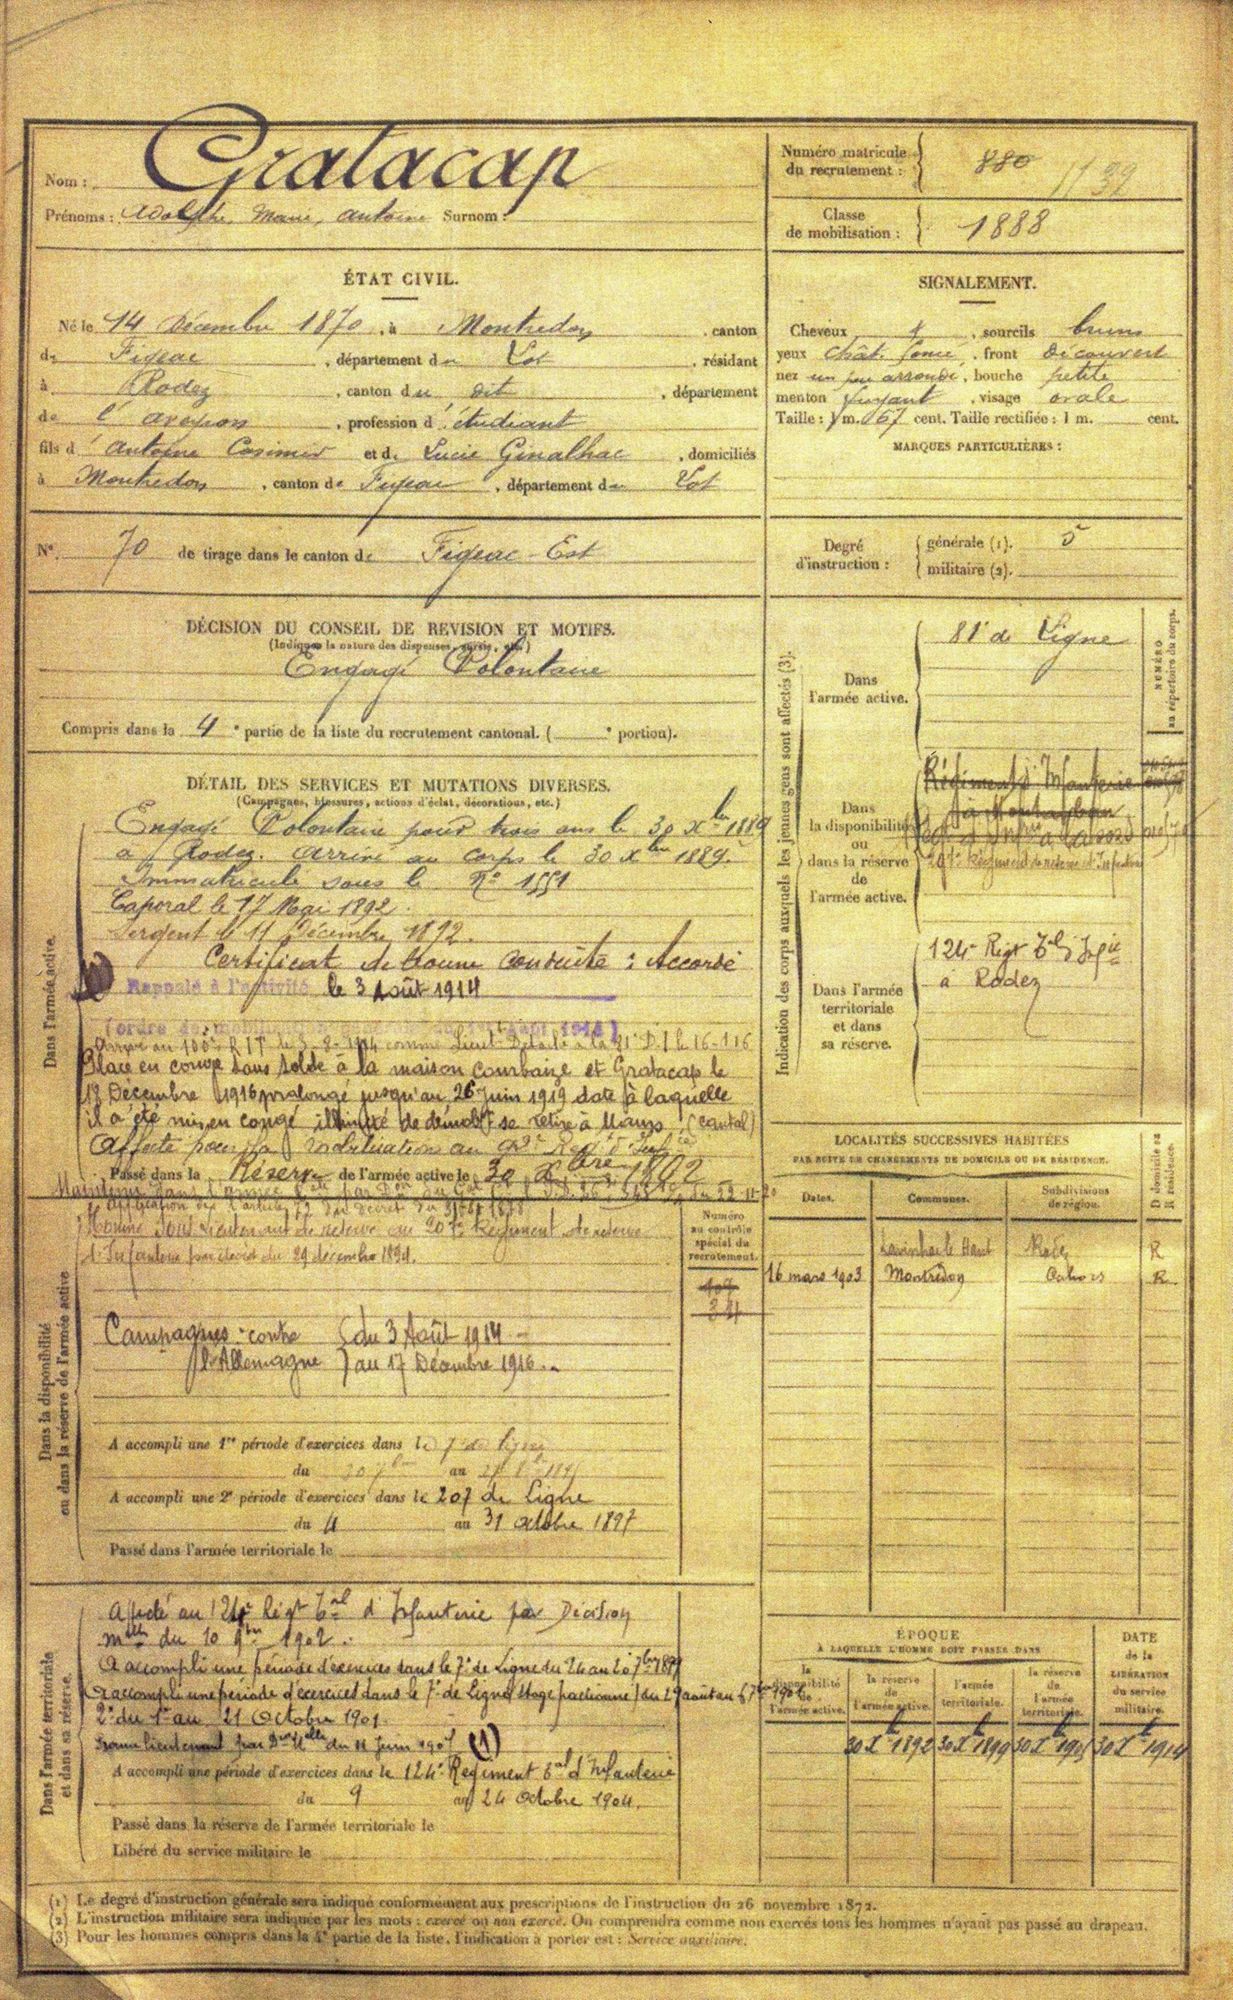 Nom : Gratacap
Prénoms : Adolphe, Marie, Antoine Surnom :
Numéro matricule du recrutement : 880 1139
Classe de mobilisation : 1888
ÉTAT CIVIL.
Né le 14 Décembre 1870, à Montredon, canton
de Figeac, département du Lot, résidant
à Rodez, canton du dit, département
de l'aveyron, profession d'étudiant
fils d'Antoine Casimir et de Lucie Ginalhac, domiciliés
à Montredon, canton de Figeac, département du Lot
SIGNALEMENT.
Cheveux, sourcils bruns
yeux chât. foncé, front découvert
nez un peu arrondi, bouche petite
menton fuyant, visage ovale
Taille : 1 m. 67 cent. Taille rectifiée : 1 m. cent.
MARQUES PARTICULIÈRES :
N° 70 de tirage dans le canton de Figeac-Est
Degré d'instruction : générale (1). 5
militaire (2).
DÉCISION DU CONSEIL DE REVISION ET MOTIFS.
(Indiquer la nature des dispenses, sursis, etc.)
Engagé Volontaire
Compris dans la 4e partie de la liste du recrutement cantonal. ( e portion).
DÉTAIL DES SERVICES ET MUTATIONS DIVERSES.
(Campagnes, blessures, actions d'éclat, décorations, etc.)
Dans l'armée active.
Engagé Volontaire pour trois ans le 30 Xbre 1889
à Rodez. Arrivé au corps le 30 Xbre 1889.
Immatriculé sous le N° 1551
Caporal le 17 Mai 1892.
Sergent le 11 Décembre 1892.
Certificat de bonne conduite : Accordé
Rappelé à l'activité le 3 Août 1914
(ordre de mobilisation
Arrivé au le 3-8-1914 comme Lieut. Détaché à la 31e D.I le 16-1-16
Placé en congé sans solde à la maison Courbaize et Gratacap le
18 Décembre 1916 prolongé jusqu'au 26 Juin 1919 date à laquelle
il a été mis en congé illimité de démob et se retire à Maurs (Cantal)
Affecté pour la mobilisation au
Passé dans la Réserve de l'armée active le 30 Xbre 1892
Application de l'article
Nommé Sous Lieutenant de réserve au 207e Régiment de réserve
d'Infanterie par décret du 29 décembre 1894.
Numéro au contrôle spécial du recrutement.
107
34
Dans la disponibilité ou dans la réserve de l'armée active
Campagnes contre l'Allemagne du 3 Août 1914
au 17 Décembre 1916
A accompli une 1re période d'exercices dans le 7e de ligne
du 20 au
A accompli une 2e période d'exercices dans le 207 de Ligne
du 4 au 31 octobre 1897
Passé dans l'armée territoriale le
Dans l'armée territoriale et dans sa réserve.
Affecté au 124e Régt Tal d'Infanterie par Décision
mlle du 10 9bre 1902.
A accompli une période d'exercices dans le 7e de Ligne du 24 au 20 7bre 1899
A accompli une période d'exercices dans le 7e de Ligne (Stage fractionné) du 29 août au 6 7bre
2e du 1er au 21 Octobre 1901.
lieutenant par Don Mlle du 11 Juin 1907 (1)
A accompli une période d'exercices dans le 124e Régiment Tal d'Infanterie
du 9 au 24 octobre 1904.
Passé dans la réserve de l'armée territoriale le
Libéré du service militaire le
Indication des corps auxquels les jeunes gens sont affectés (3).
NUMÉRO au répertoire du corps.
Dans l'armée active. 81e de Ligne
Dans la disponibilité ou dans la réserve de l'armée active.
Régiment d'Infanterie
à Montauban
Regt d'Infrie à Cahors
207e Régiment de réserve d'Infanterie
Dans l'armée territoriale et dans sa réserve.
124e Regt Tal d'Infie
à Rodez
LOCALITÉS SUCCESSIVES HABITÉES
PAR SUITE DE CHANGEMENTS DE DOMICILE OU DE RÉSIDENCE.
Dates. Communes. Subdivisions de région. D domicile ou R résidence.
Livinhac le Haut Rodez R
16 mars 1903 Montredon Cahors R
ÉPOQUE
À LAQUELLE L'HOMME DOIT PASSER DANS
la disponibilité de l'armée active. la réserve de l'armée active. l'armée territoriale. la réserve de l'armée territoriale. DATE de la LIBÉRATION du service militaire.
30 Xbre 1892 30 Xbre 1899 30 Xbre 1905 30 Xbre 1914
(1) Le degré d'instruction générale sera indiqué conformément aux prescriptions de l'instruction du 26 novembre 1872.
(2) L'instruction militaire sera indiquée par les mots : exercé ou non exercé. On comprendra comme non exercés tous les hommes n'ayant pas passé au drapeau.
(3) Pour les hommes compris dans la 4e partie de la liste, l'indication à porter est : Service auxiliaire.